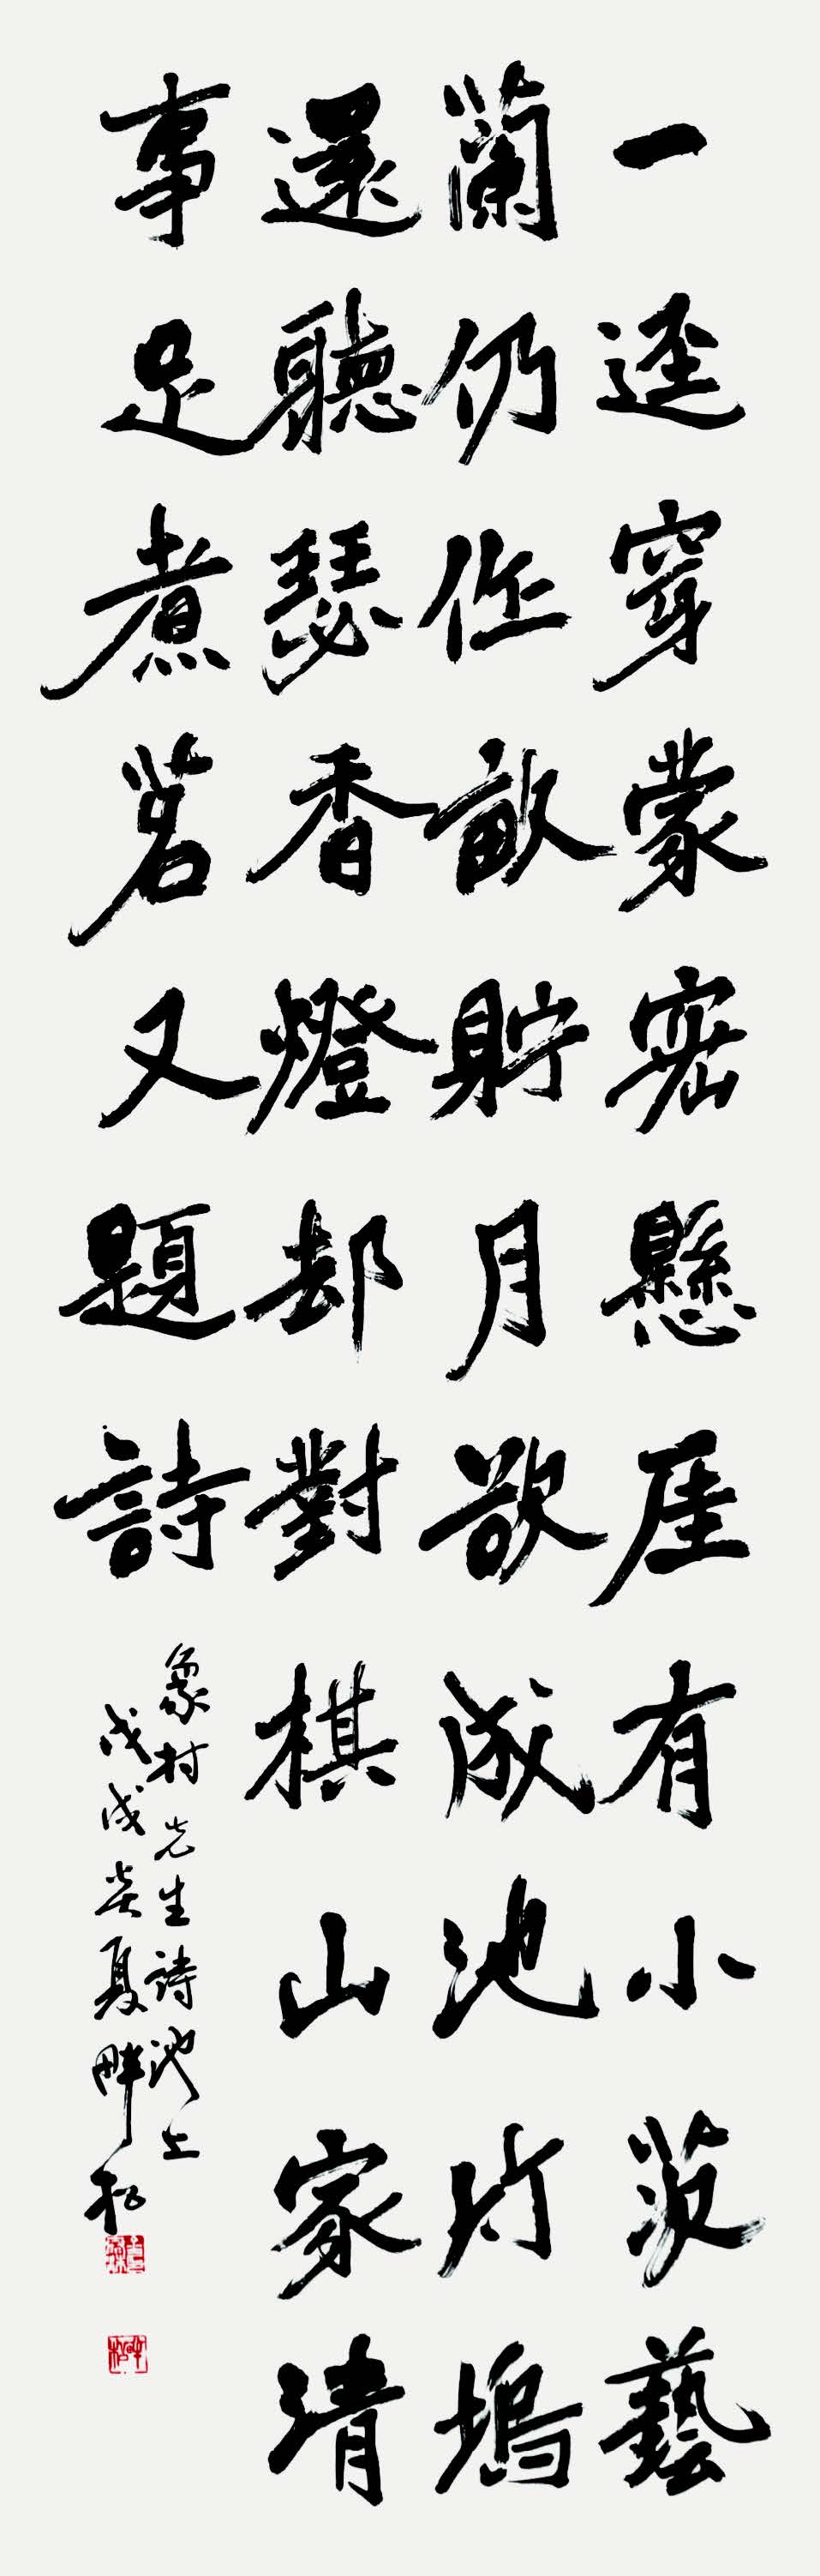 一逕穿蒙密懸厓有小茨藝
蘭仍作畝貯月欲成池竹塢
還聽瑟香燈却對棋山家清
事足煮茗又題詩
象村先生詩池上
戊戌炎夏畔松